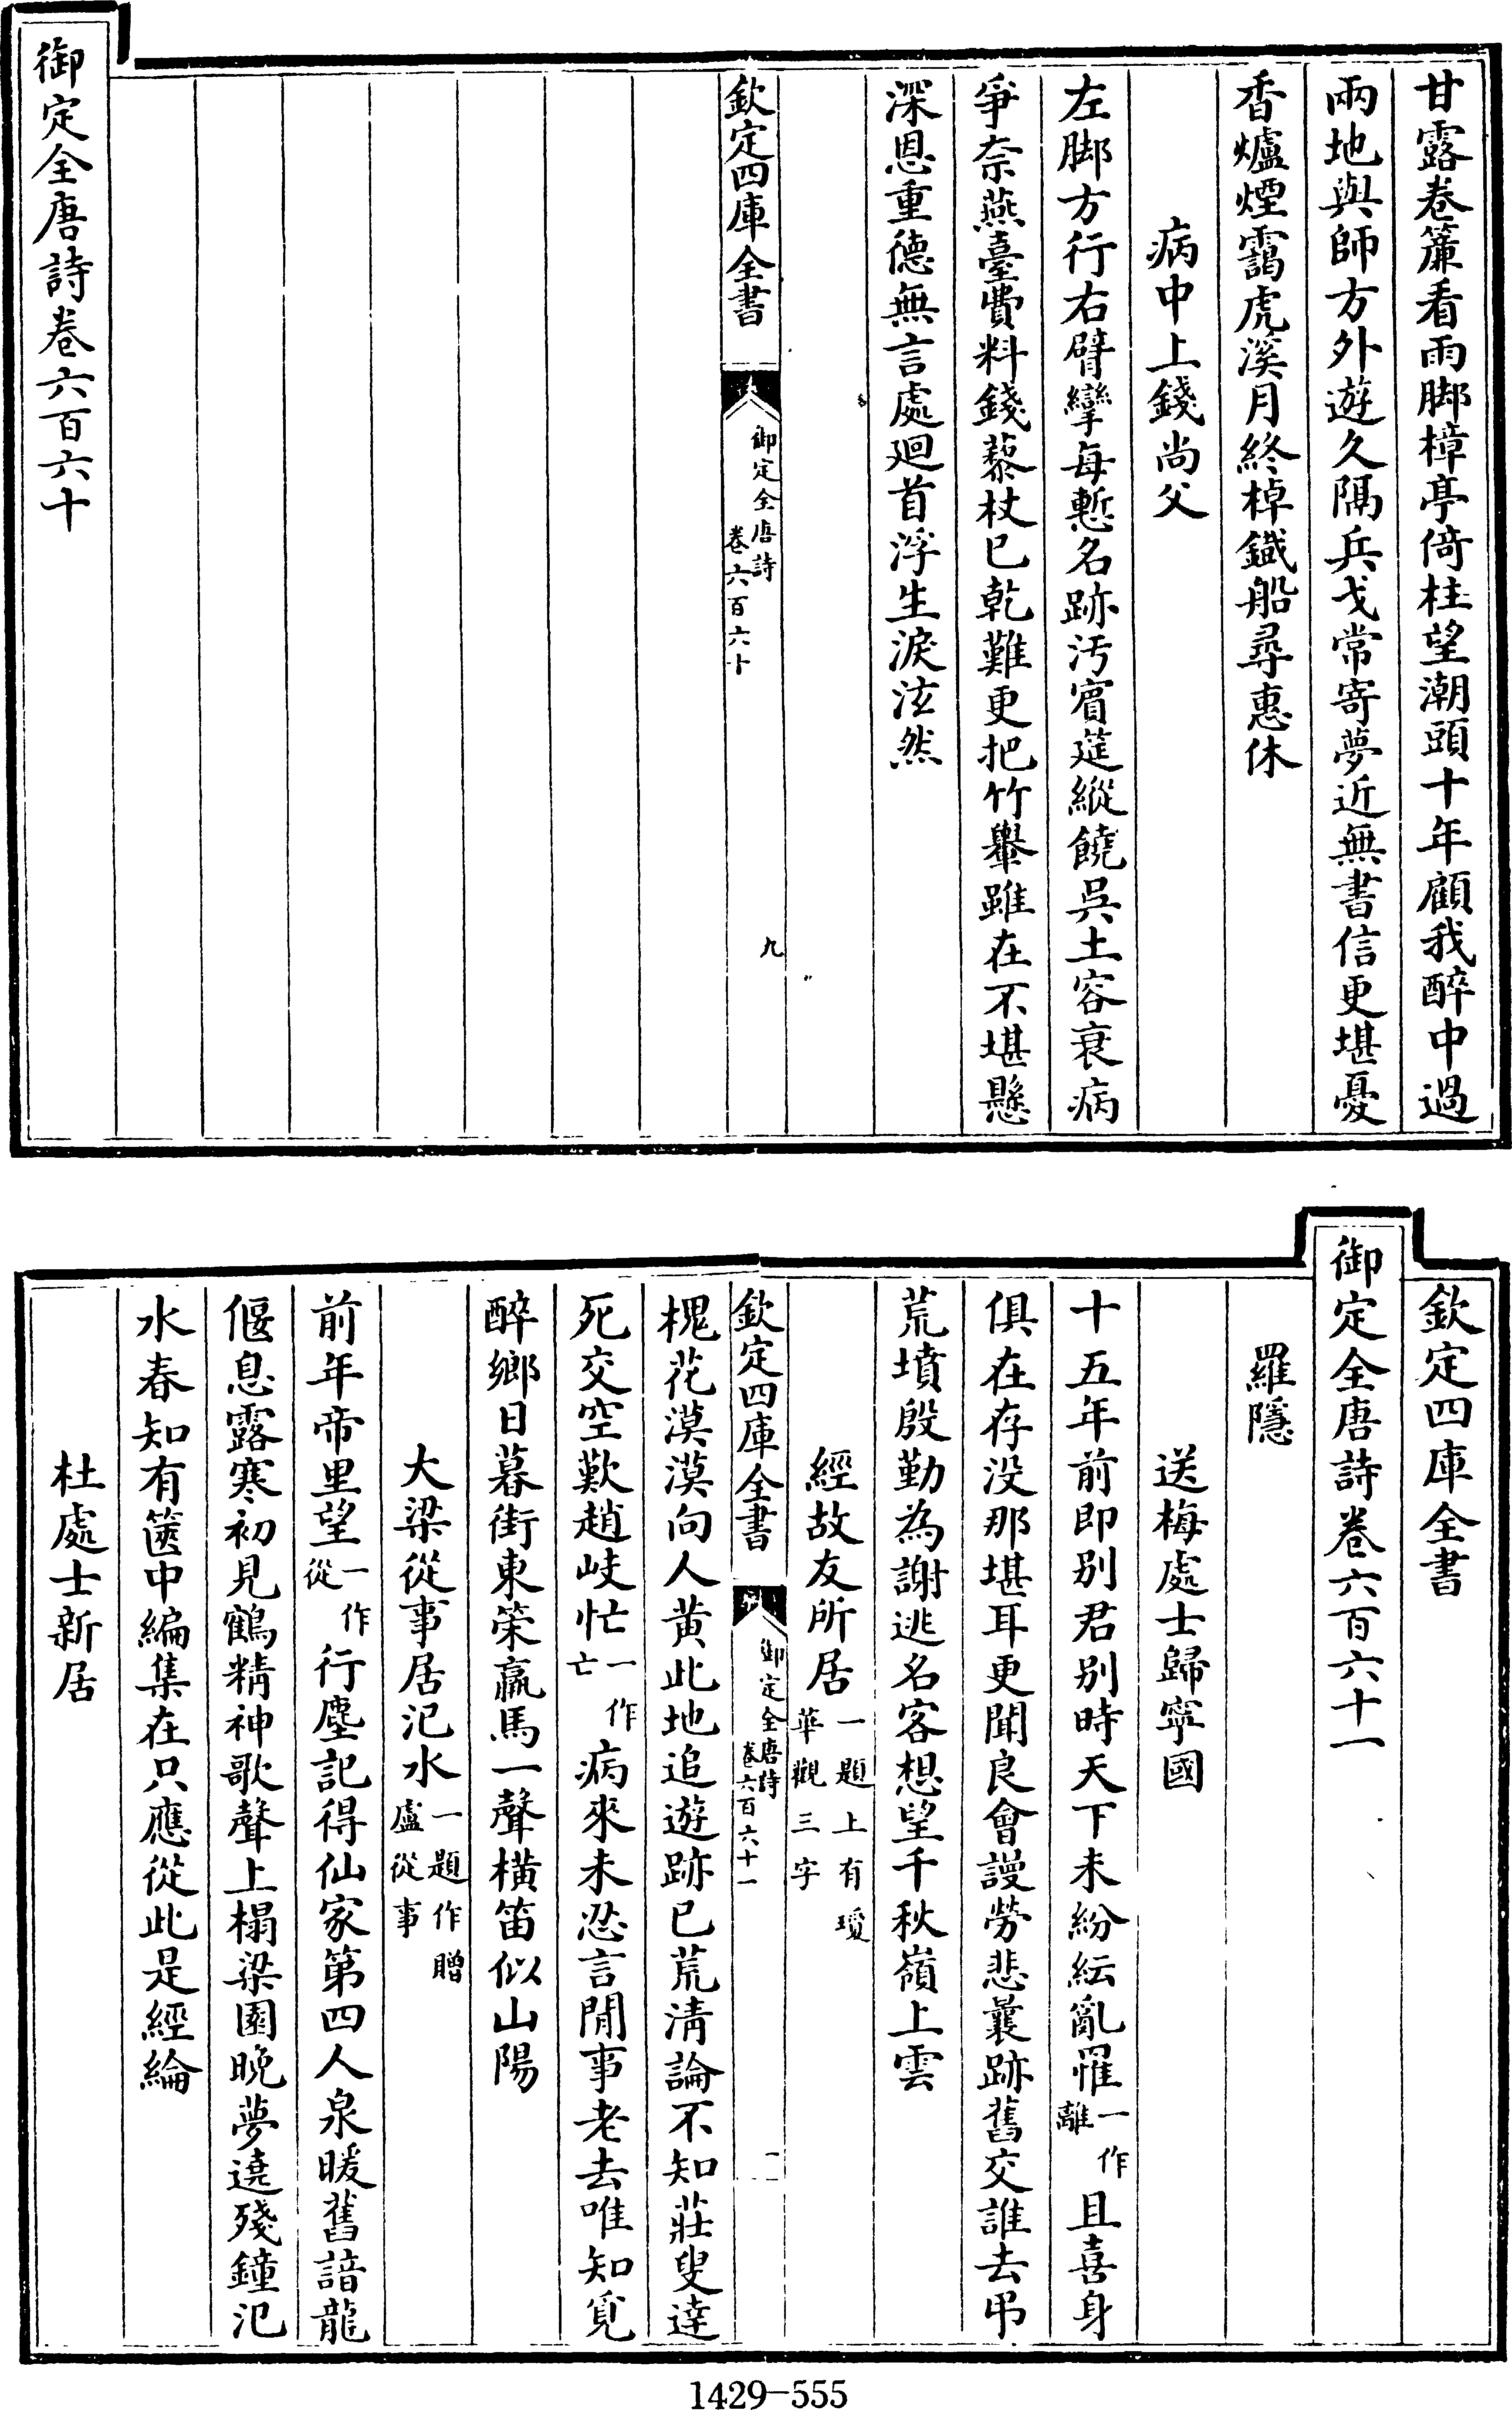 甘露卷簾看雨脚樟亭倚柱望潮頭十年顧我醉中過
兩地與師方外遊久隔兵戈常寄夢近無書信更堪憂
香爐煙靄虎溪月終棹鐡船尋惠休
病中上錢尚父
左脚方行右臂攣每慙名跡汚賓筵縱饒吳土容衰病
爭奈燕臺費料錢藜杖已乾難更把竹轝雖在不堪懸
深恩重德無言處廻首浮生淚泫然
欽定四庫全書
御定全唐詩
卷六百六十
九
御定全唐詩卷六百六十
欽定四庫全書
御定全唐詩卷六百六十一
羅隱
送梅處士歸寧國
十五年前即别君别時天下未紛紜亂罹一作離且喜身
俱在存没那堪耳更聞良會謾勞悲曩跡舊交誰去弔
荒墳殷勤為謝逃名客想望千秋嶺上雲
經故友所居一題上有瓊華觀三字
欽定四庫全書
御定全唐詩
卷六百六十一
一
槐花漠漠向人黄此地追遊跡已荒清論不知莊叟達
死交空歎趙岐忙一作亡病來未忍言閒事老去唯知覓
醉鄉日暮街東策羸馬一聲橫笛似山陽
大梁從事居汜水一題作贈盧從事
前年帝里望一作從行塵記得仙家第四人泉暖舊諳龍
偃息露寒初見鶴精神歌聲上榻梁園晚夢遶殘鐘汜
水春知有篋中編集在只應從此是經綸
杜處士新居
1429-555